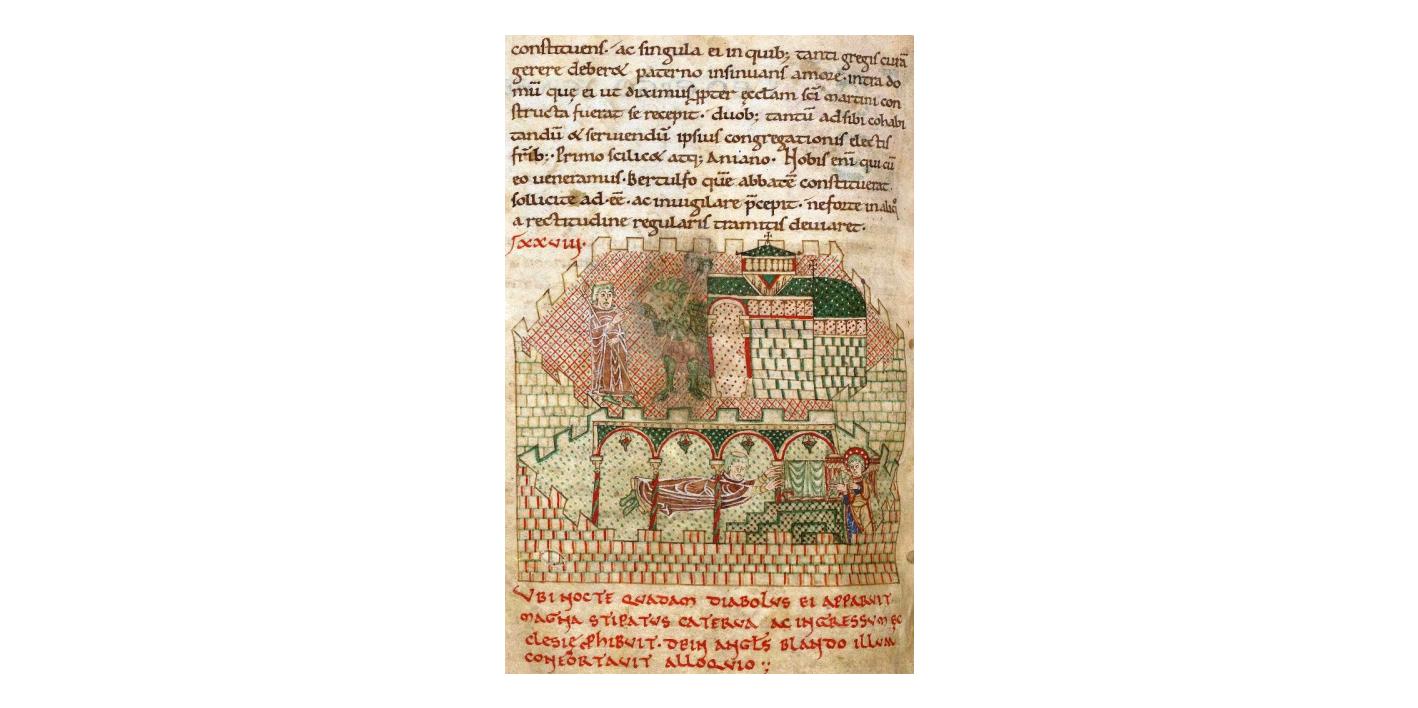 constituens· ac singula ei in quib; tanti gregis curā
gerere deberet paterno insinuans amore· intra do
mū quę ei ut diximus ppter ęcctam sci martini con
structa fuerat se recepit· duob; tantū ad sibi cohabi
tandū & seruiendū ipsius congregationis electis
frib;· Primo scilicet atq; Aniano· Nobis eni qui cū
eo ueneramus· Bertulfo quē abbatē constituerat
sollicite adēē· ac inuigilare p̄cepit· ne forte in aliqͦ
a rectitudine regularis tramitis deuiaret·
xxviii·
VBI NOCTE QUADAM DIABOLUS EI APPARUIT
MAGNA STIPATUS CATERVA AC INGRESSUM EC
CLESIĘ PHIBUIT· DEIN ANGLS BLANDO ILLUM
CONFORTAVIT ALLOQUIO